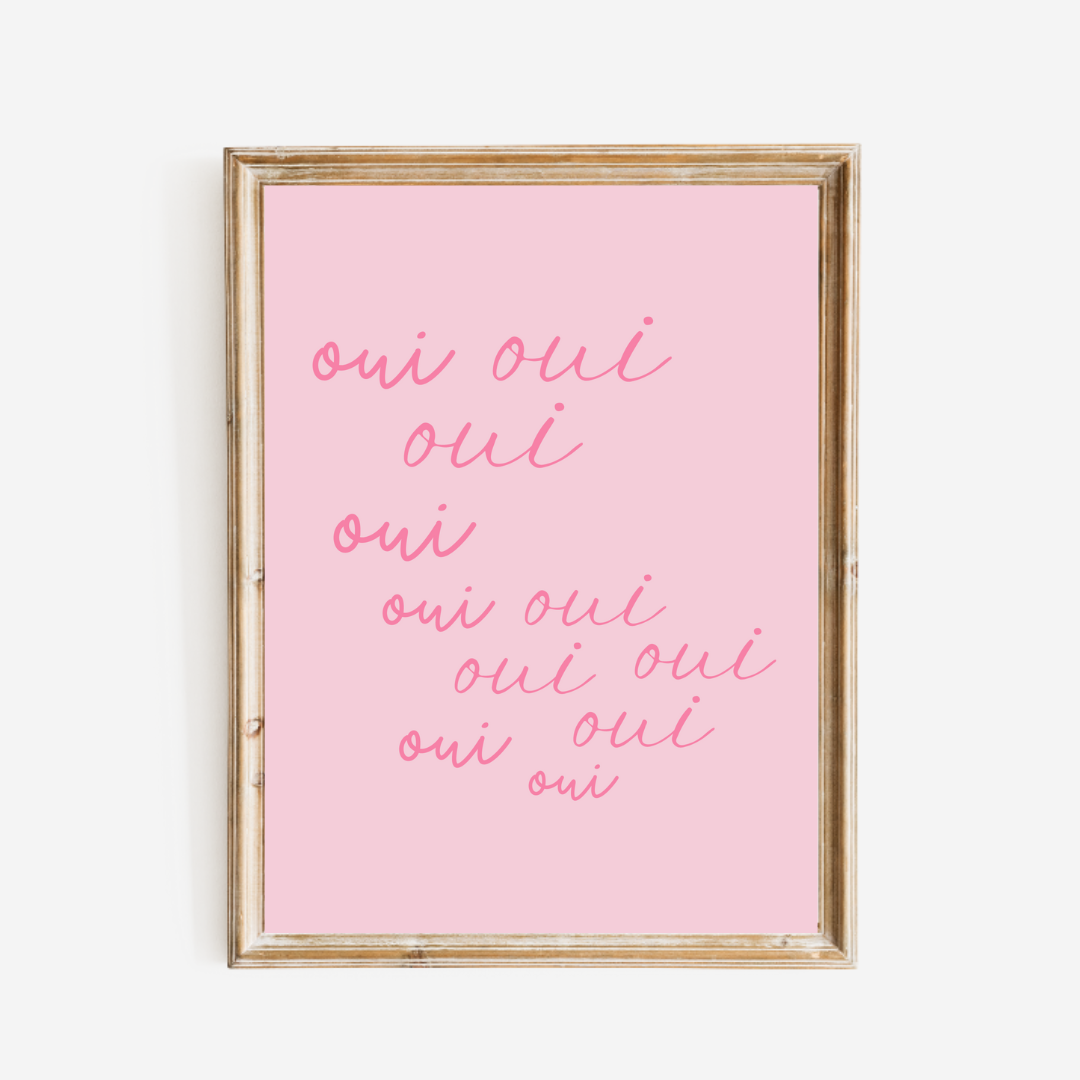 oui oui
oui
oui
oui oui
oui oui
oui oui
oui